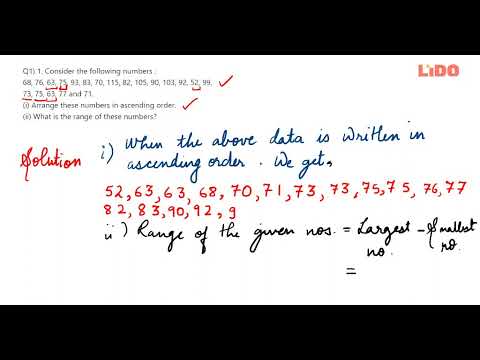 LiDO
Q1) 1. Consider the following numbers :
68, 76, 63, 75, 93, 83, 70, 115, 82, 105, 90, 103, 92, 52, 99,
73, 75, 63, 77 and 71.
(i) Arrange these numbers in ascending order.
(ii) What is the range of these numbers?
Solution
i) When the above data is written in
ascending order. We get,
52, 63, 63, 68, 70, 71, 73, 73, 75, 75, 76, 77
82, 83, 90, 92, 9
ii) Range of the given nos. = Largest - Smallest
no. no.
=